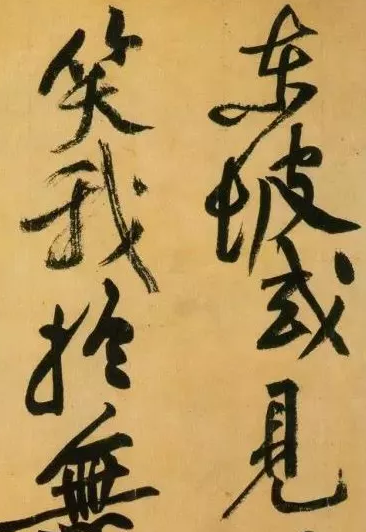 東坡或見
笑我於無